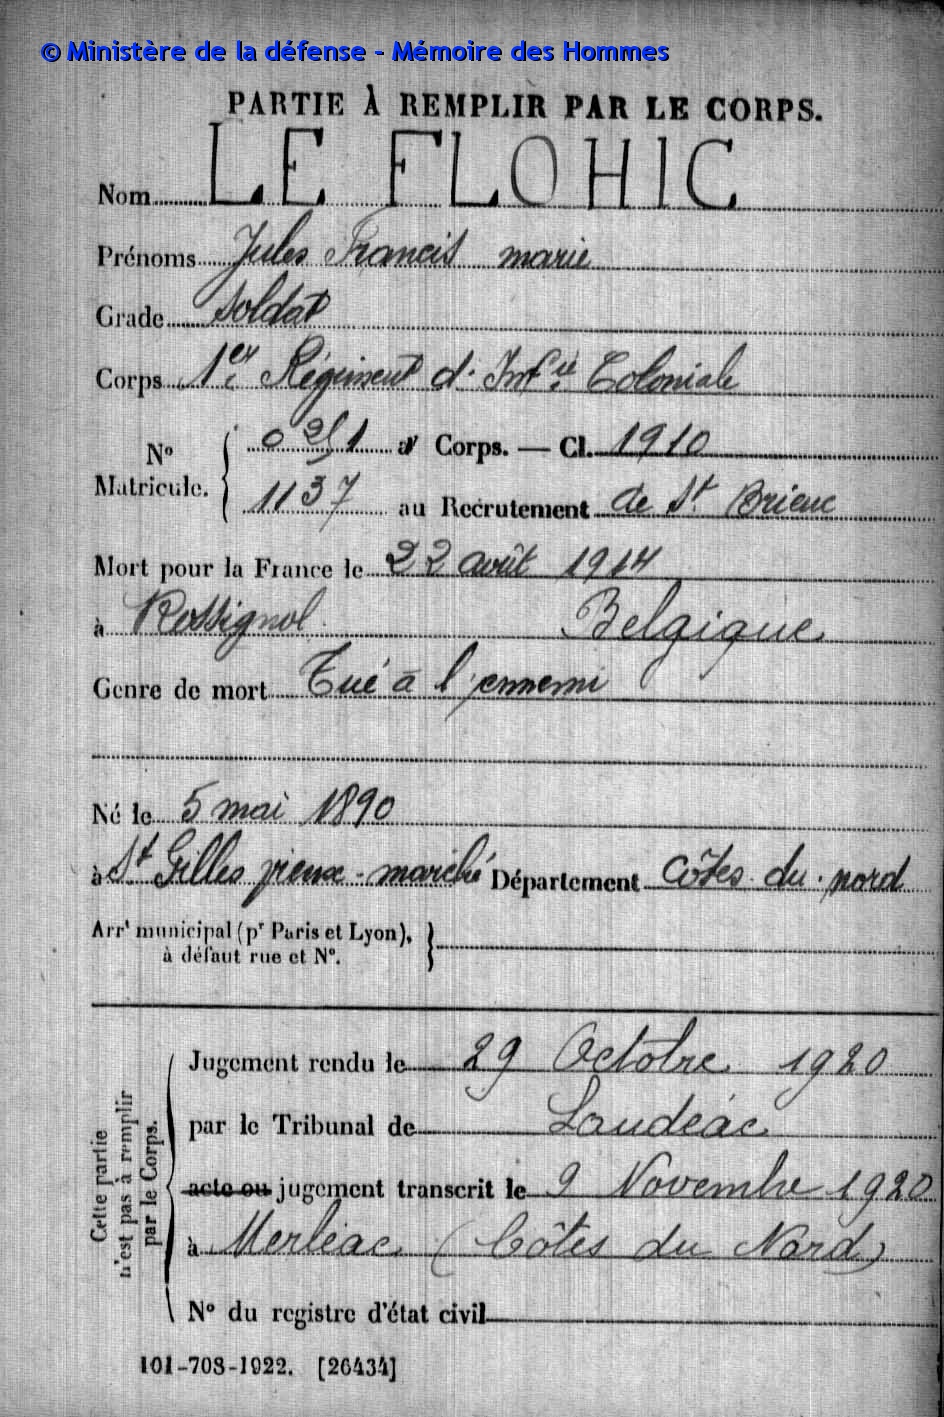 © Ministère de la défense - Mémoire des Hommes
PARTIE À REMPLIR PAR LE CORPS.
Nom LE FLOHIC
Prénoms Jules Francis marie
Grade Soldat
Corps 1er Régiment d'Infie Coloniale
No Matricule. { au Corps. — Cl. 1910
1137 au Recrutement de St Brieuc
Mort pour la France le 22 août 1914
à Rossignol Belgique
Genre de mort Tué à l'ennemi
Né le 5 mai 1890
à St Gilles vieux-marché Département Côtes-du-nord
Arrt municipal (pr Paris et Lyon), }
à défaut rue et No.
Jugement rendu le 29 Octobre 1920
par le Tribunal de Loudéac
acte ou jugement transcrit le 9 Novembre 1920
à Merléac (Côtes du Nord)
No du registre d'état civil
Cette partie
n'est pas à remplir
par le Corps.
101-708-1922. [26434]